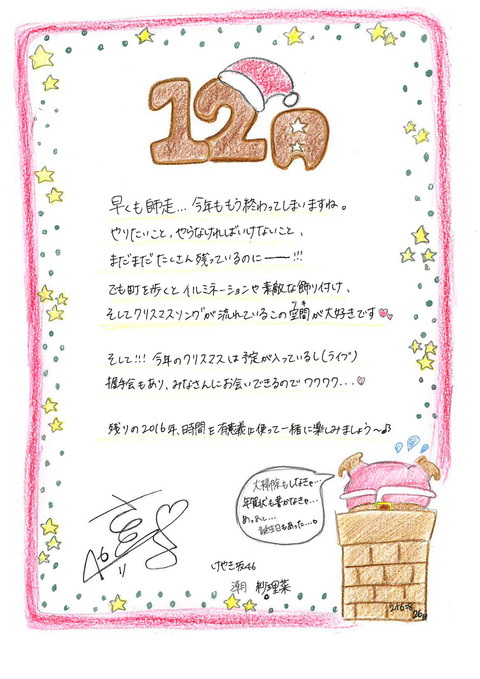 12月
早くも師走... 今年ももう終わってしまいますね。
やりたいこと、やらなければいけないこと、
まだまだたくさん残っているのに――!!!
でも町を歩くとイルミネーションや素敵な飾り付け、
そしてクリスマスソングが流れているこの空間が大好きです
そして!!! 今年のクリスマスは予定が入っているし(ライブ)
握手会もあり、みなさんにお会いできるのでワクワク...
残りの2016年、時間を有意義に使って一緒に楽しみましょう〜♪
大掃除もしなきゃ...
年賀状も書かなきゃ...
あっ、あと...
誕生日もあった...。
けやき坂46
潮 紗理菜